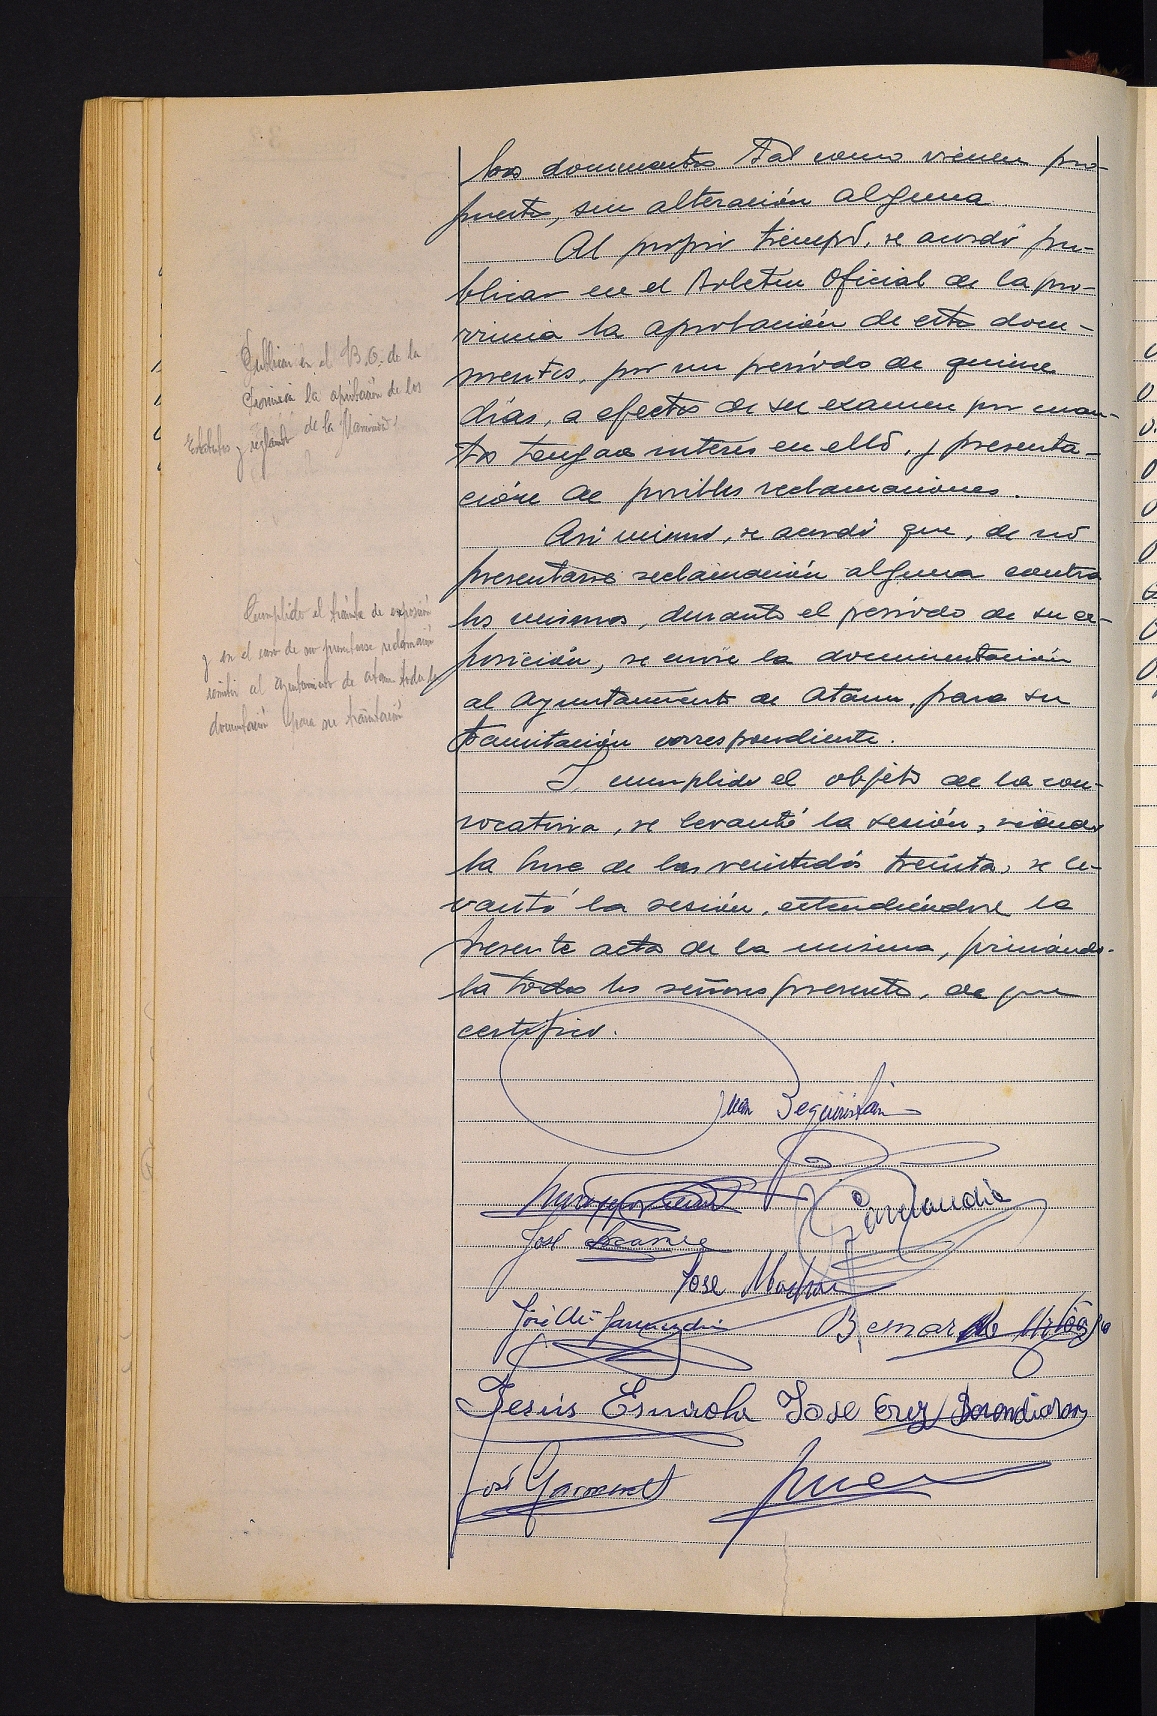 tos documentos tal como vienen pro-
puestos, sin alteración alguna
Al propio tiempo, se acordó pu-
blicar en el Boletin Oficial de la pro-
vincia la aprobación de estos docu-
mentos, por un periodo de quince
días, a efectos de su examen por cuan-
tos tengan interés en ello, y presenta-
ción de posibles reclamaciones.
Asi mismo, se acordó que, de no
presentarse reclamación alguna contra
los mismos, durante el periodo de su ex-
posición, se envie la documentación
al Ayuntamiento de Ataun, para su
tramitación correspondiente.
Y cumplido el objeto de la con-
vocatoria, se levantó la sesión, siendo
la hora de las veintidós treinta, se le-
vantó la sesión, extendiéndose la
presente acta de la misma, firmándo-
la todos los señores presentes, de que
certifico.
Publicar en el B.O. de la
Provincia la aprobación de los
Estatutos y reglamento de la
Cumplido el trámite de exposición
y en el caso de no presentarse reclamación
remitir al Ayuntamiento de Ataun toda la
documentación para su tramitación
Juan Beguiristain
José
Jose
José Mª
Bernardo
Jesús José Cruz Barandiaran
José